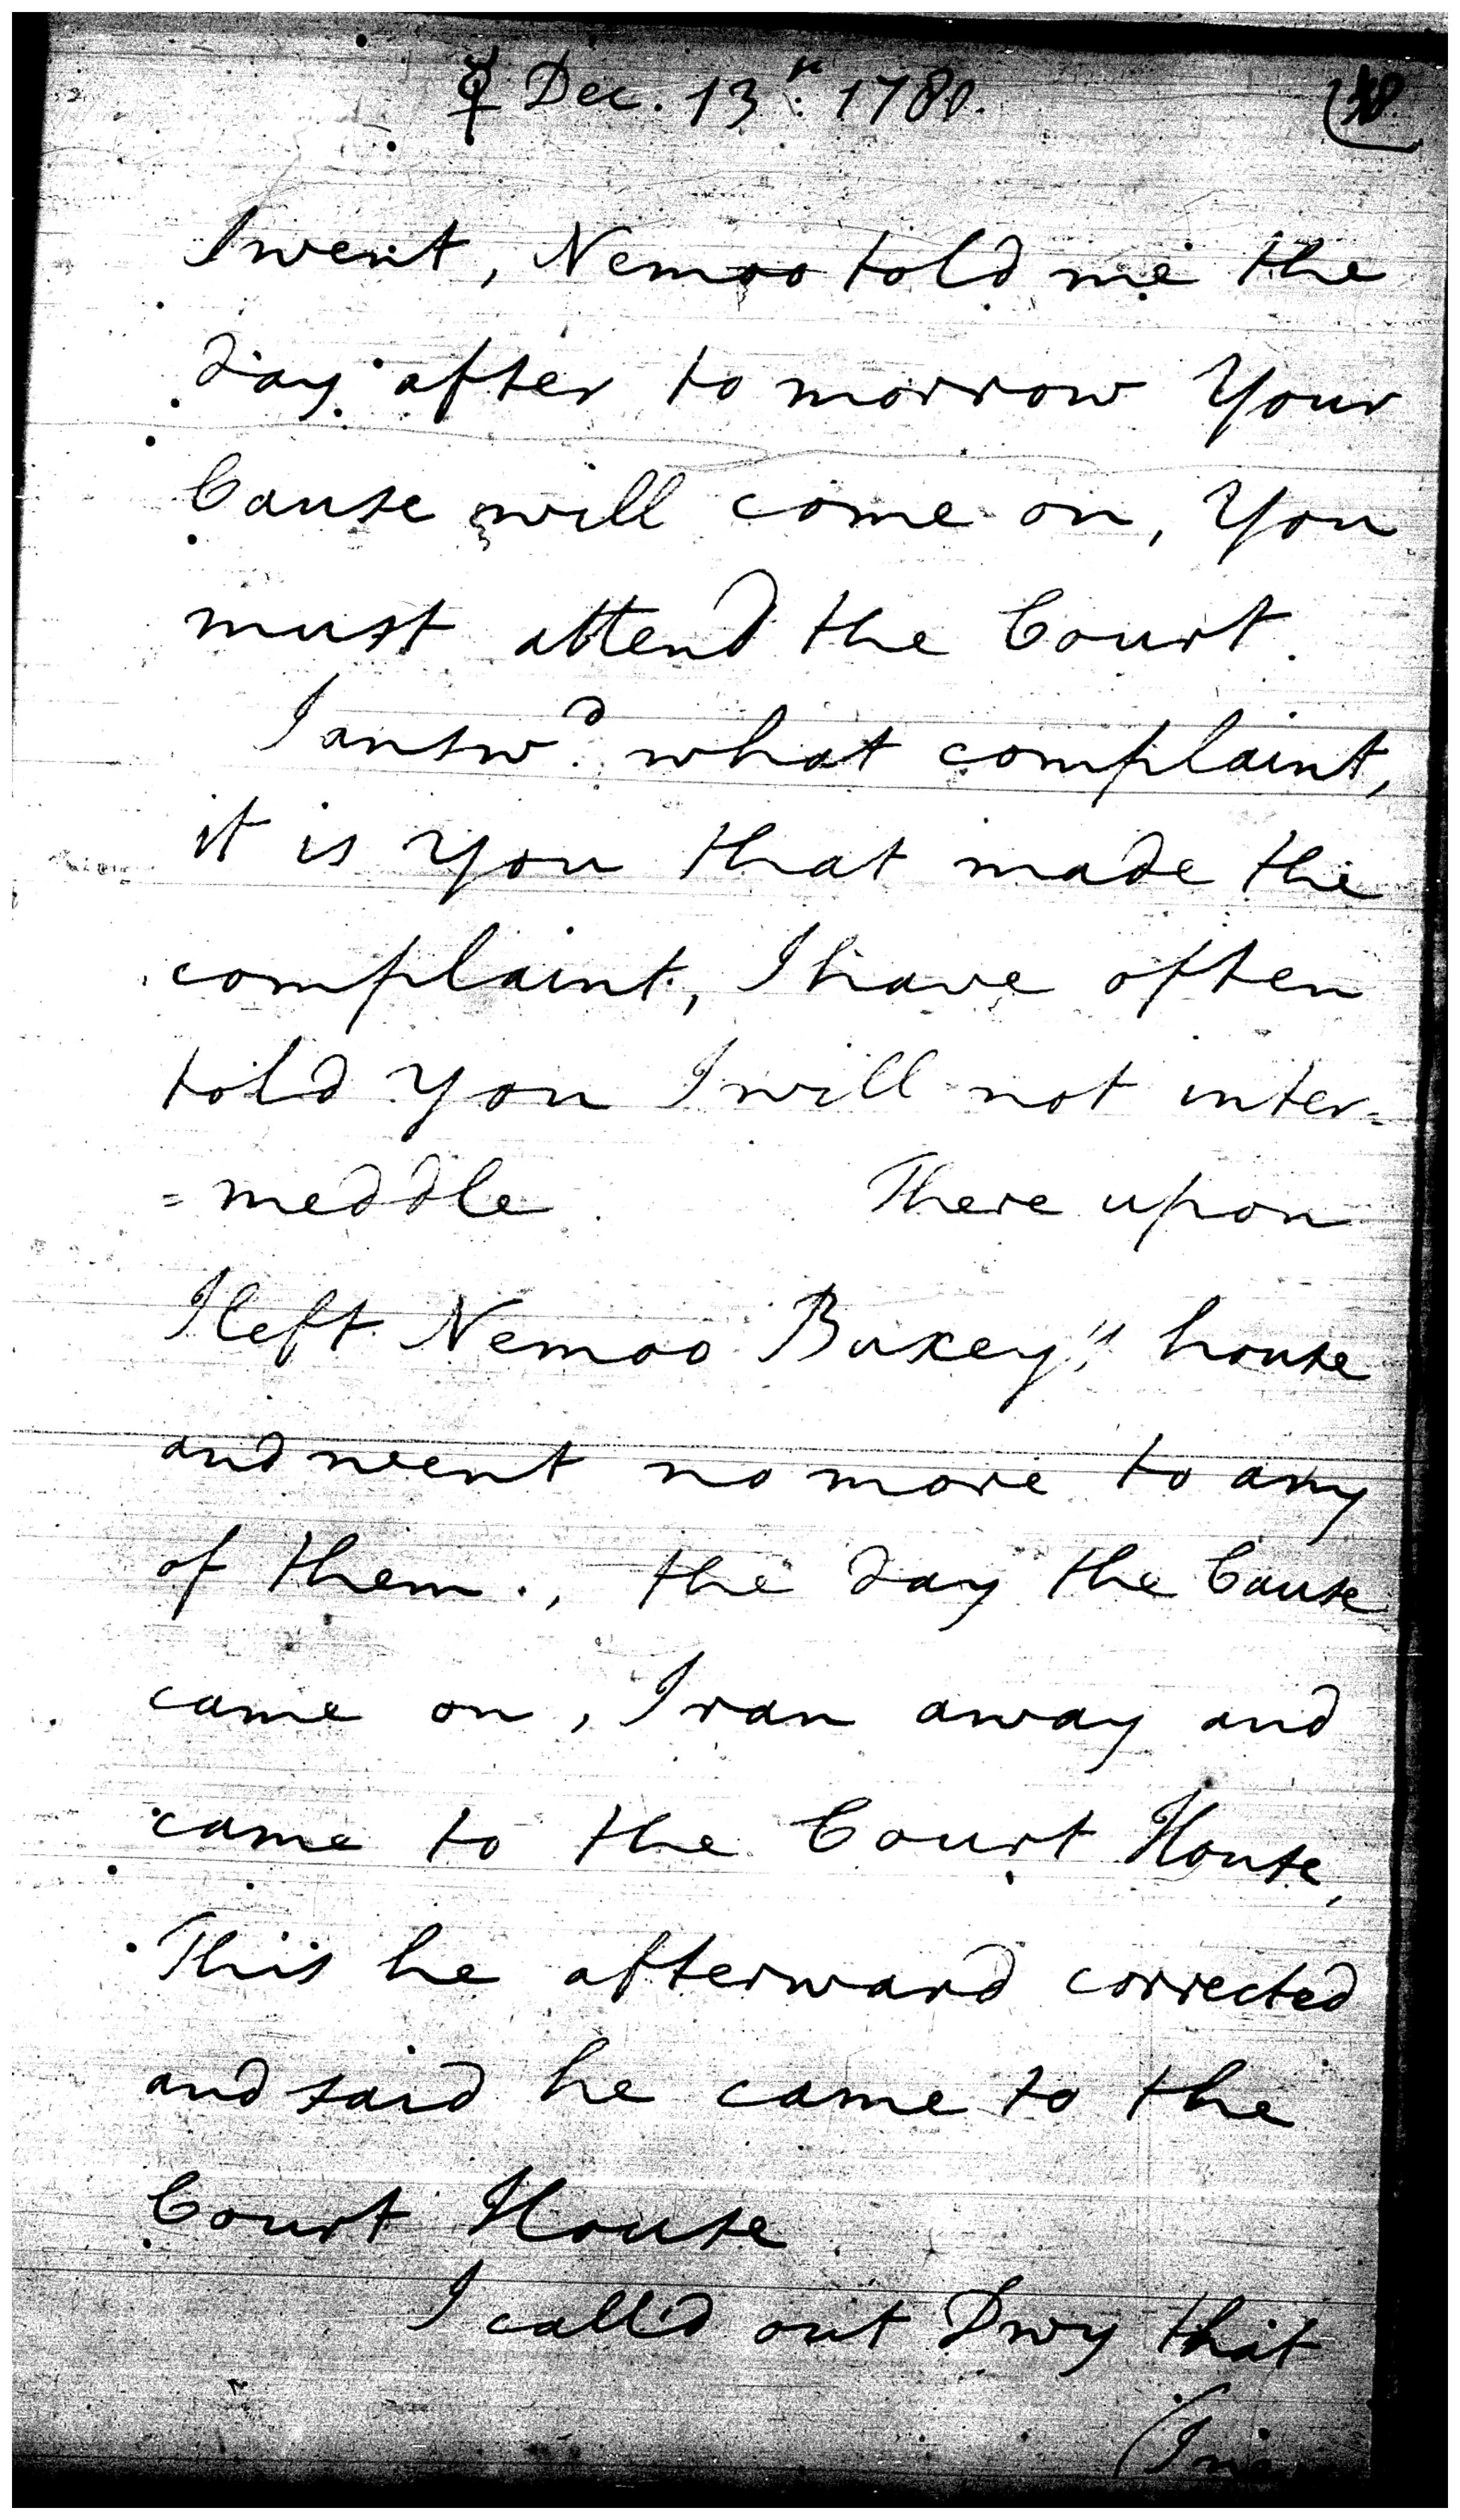 ☿ Dec. 13th. 1780.
I went, Nemoo told me the
day after to morrow Your
Cause will come on, You
must attend the Court.
I answd. what complaint,
it is You that made the
complaint, I have often
told You I will not inter=
=meddle. There upon
I left Nemoo Buxey's house
and went no more to any
of them., the day the Cause
came on, I ran away and
came to the Court House,
This he afterward corrected
and said he came to the
Court House.
I call'd out Dwy that